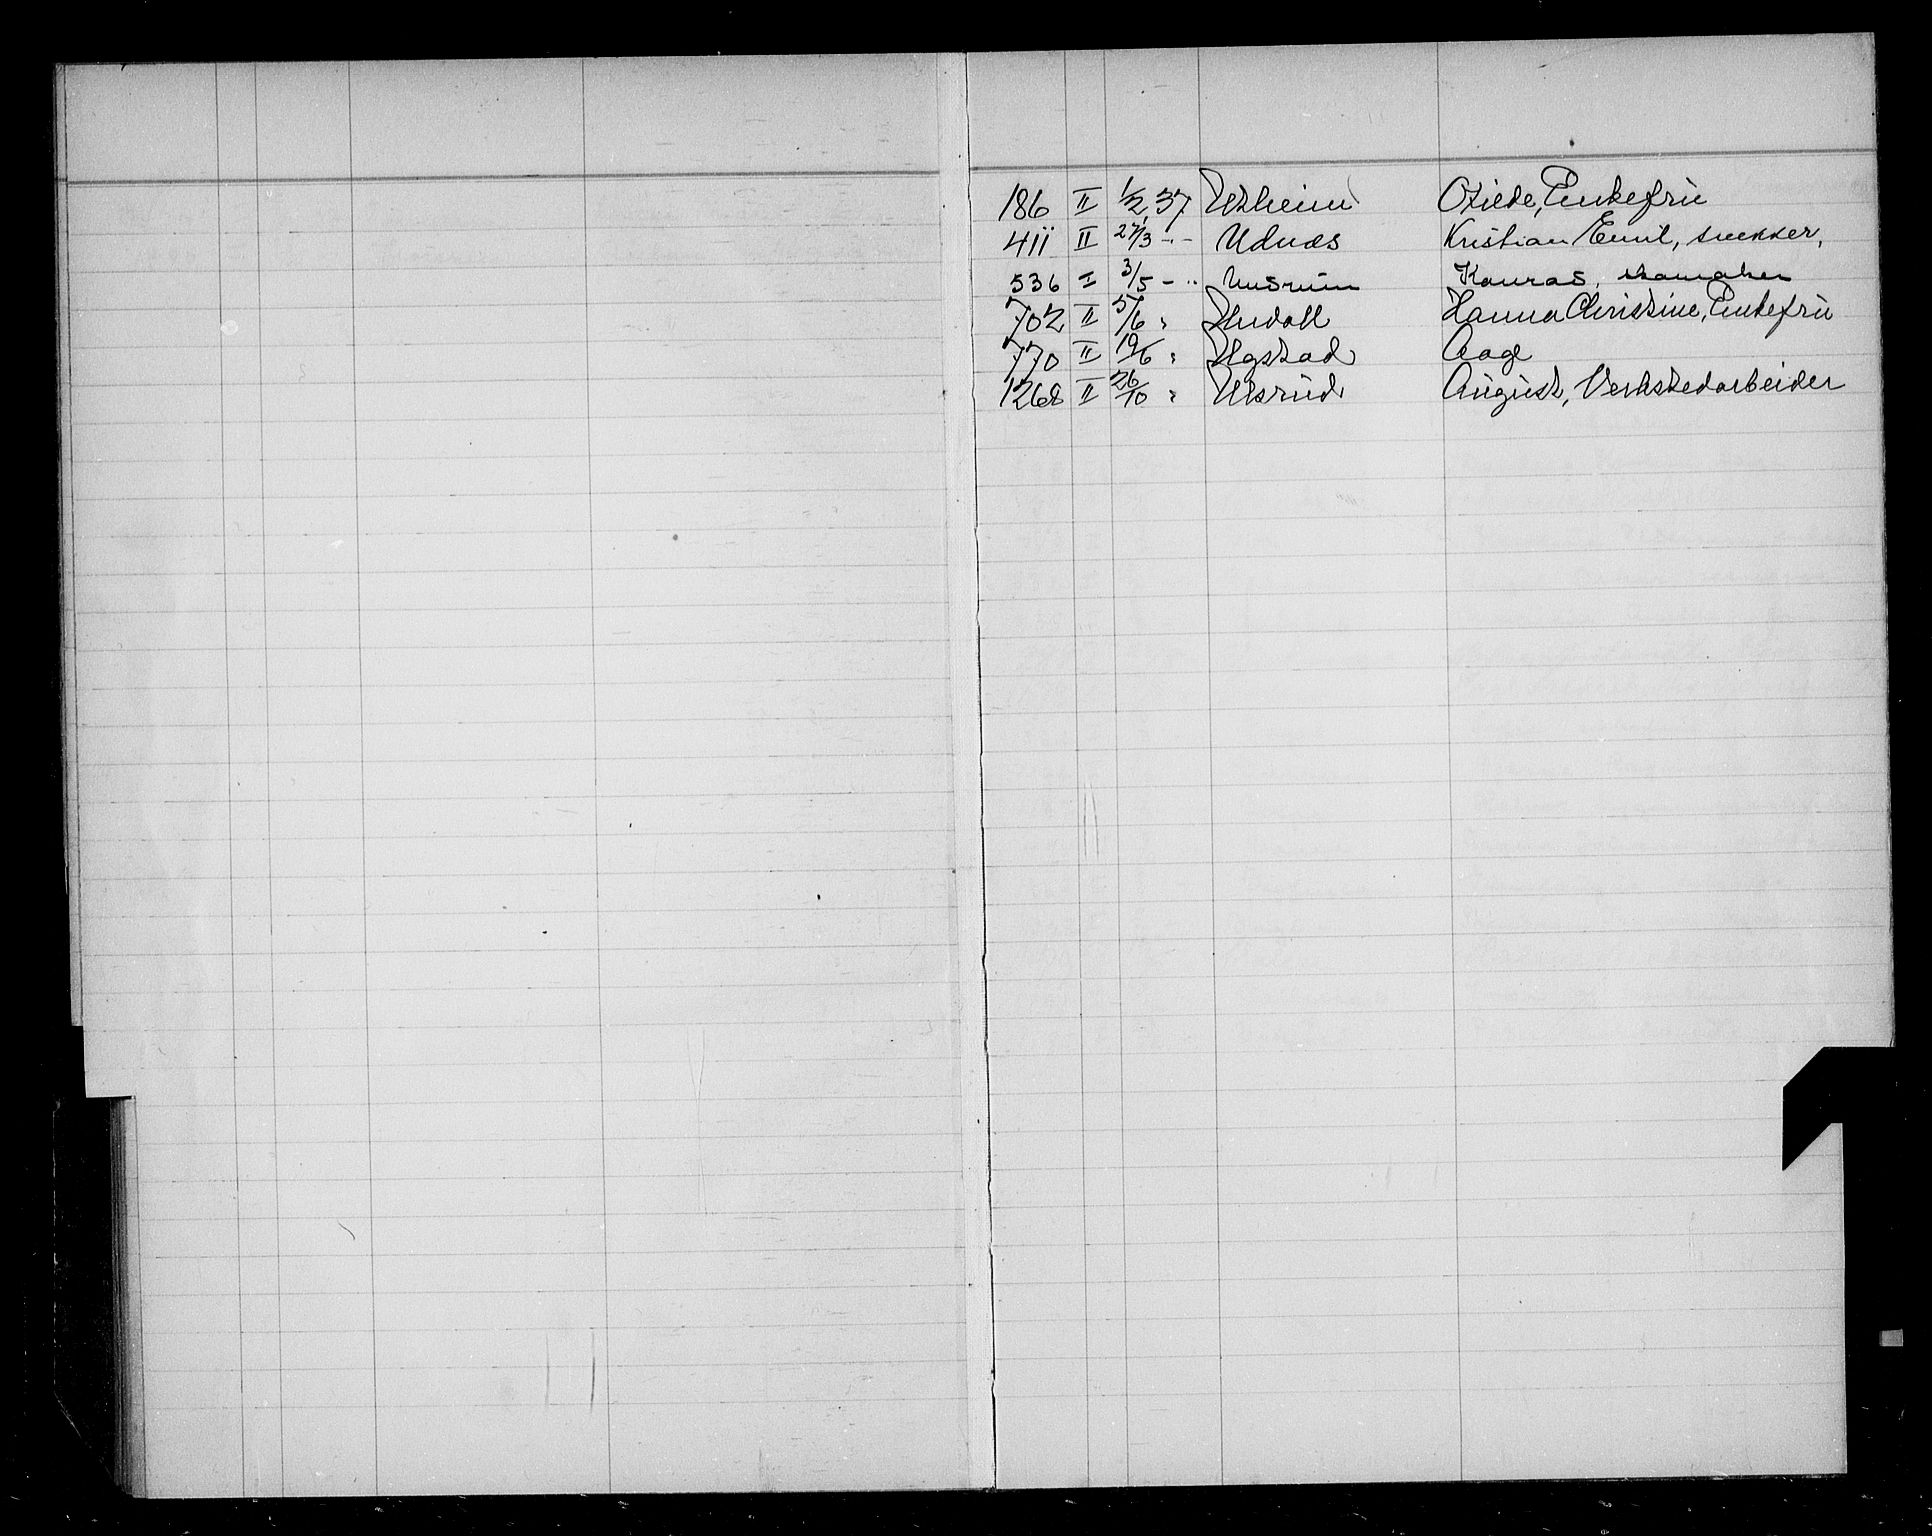 186 II 1/2, 37 Utheim Otilde, Enkefru
411 II 27/3 -"- Udnæs Kristian Emil, snekker,
536 I 3/5 - " Konrad, skomaker
702 II 5/6 " Undall Hanna Christine, Enkefru
770 II 19/6 " Ugstad Aage
1268 II 26/10 " Ulsrud August, Verkstedarbeider